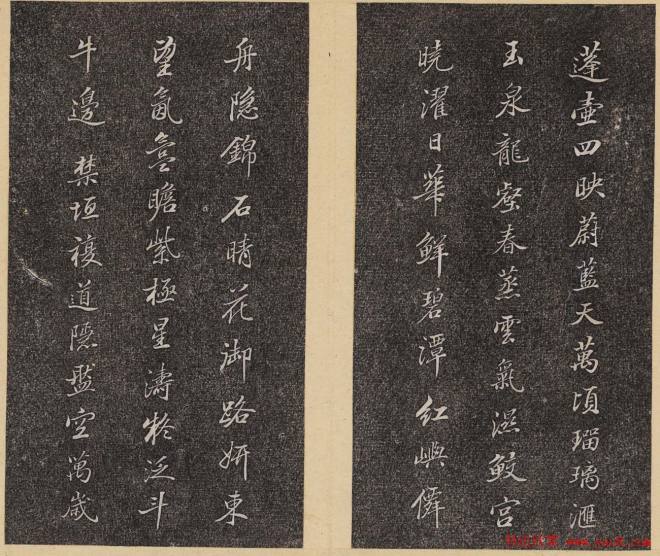 蓬壺四映蔚藍天萬頃瑠璃滙
玉泉龍壑春蒸雲氣濕鮫宮
曉濯日華鮮碧潭紅嶼僊
舟隐錦石晴花御路妍東
望氤氳瞻紫極星濤泛斗
牛邊 禁垣複道隱空萬歲